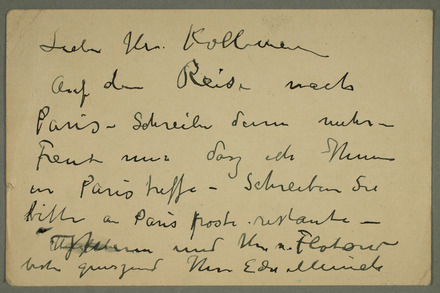 Lieber Hr. Kollmann
Auf der Reise nach
Paris – Schreibe dann mehr –
Freut mich daß ich Ihnen
in Paris treffe – Schreiben Sie
bitte an Paris poste restante –
und Hr. v. Flotow
beste grüssend Ihr Edv Munch